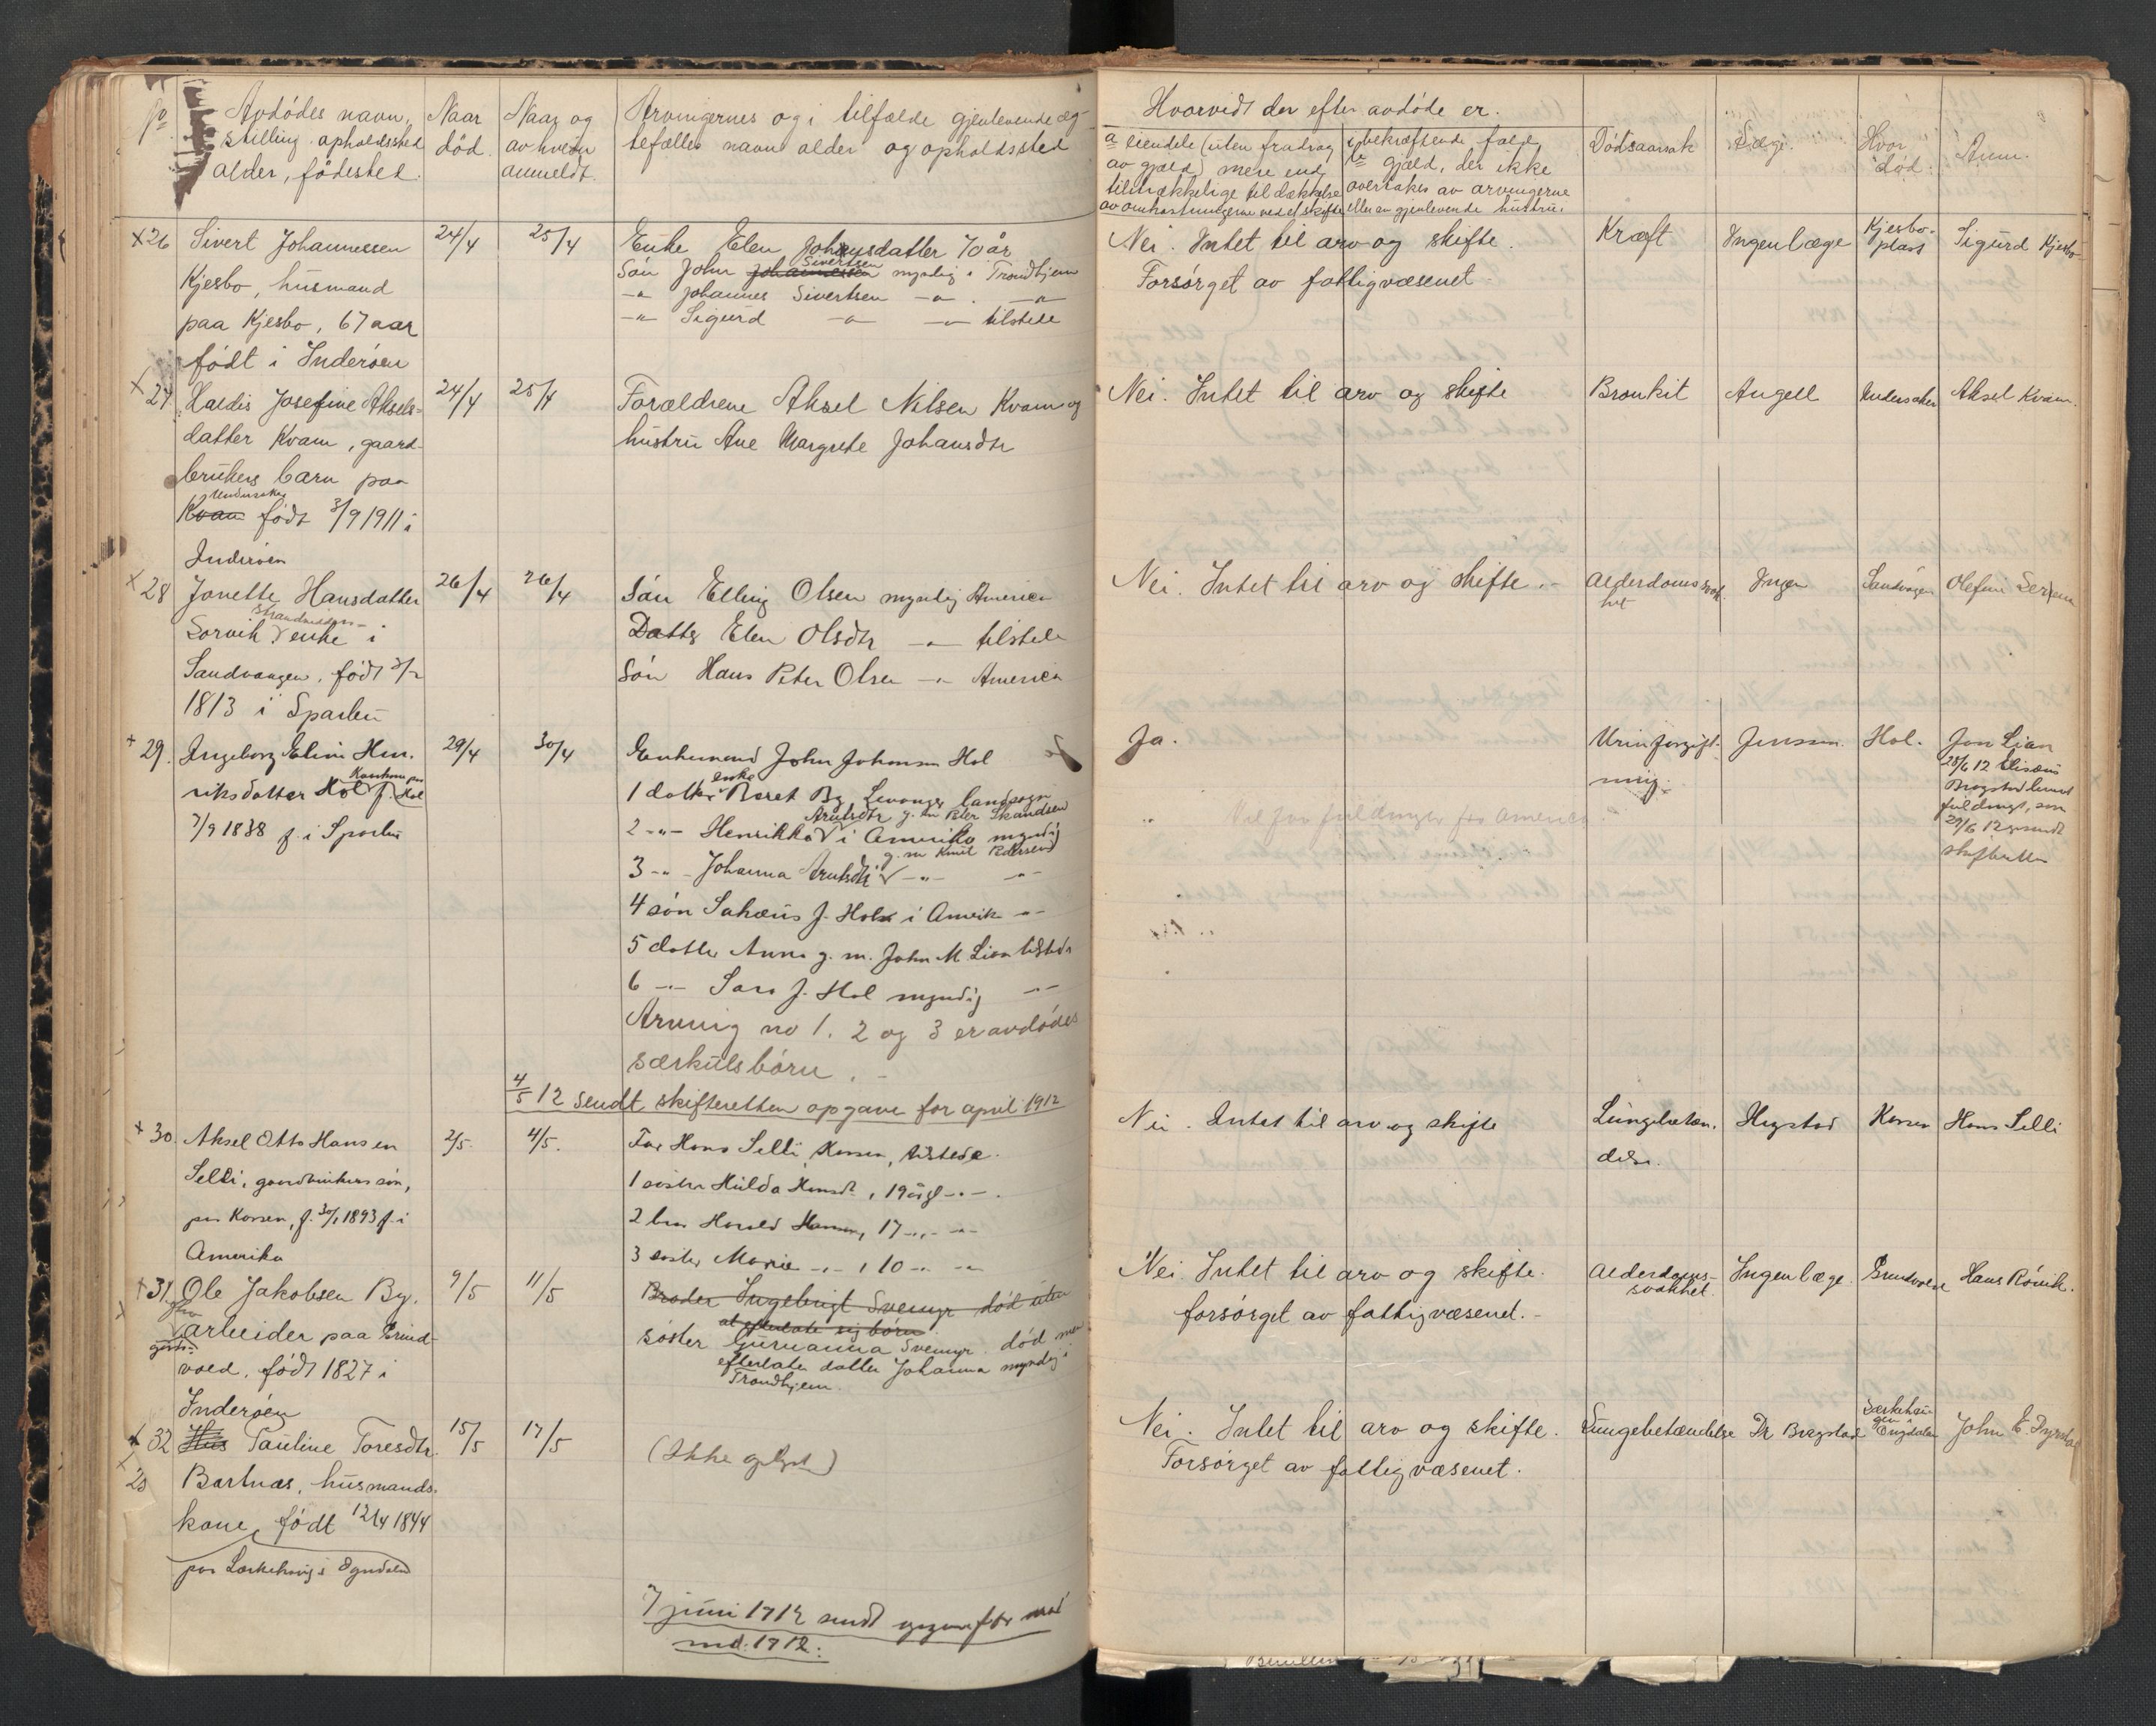 No
Avdødes navn,
stilling opholdssted
alder, fødested.
Naar
død.
Naar og
av hvem
anmeldt.
Arvingernes og i tilfælde gjenlevende æg-
tefælles navn alder og opholdssted
Hvorvidt der efter avdøde er.
a eiendele (uten fradrag
av gjæld) mere end
tilstrækkelige til dækkelse
av omkostningerne ved et skifte
i bekræftende fald,
b gjæld, der ikke
overtakes av arvingerne
eller en gjenlevende hustru.
Dødsaarsak
Læge.
Hvor
død.
Anm.
x 26 Sivert Johannessen
Kjesbo, husmand
paa Kjesbo, 67 aar
født i Inderøen
24/4
25/4
Enke Elen Johansdatter 70 år
Søn John Johannessen Sivertsen myndig i Trondhjem
-"- Johannes Sivertsen -"- . -"-
-"- Sigurd -"- -"- tilstede
Nei. Intet til arv og skifte.
Forsørget av fattigvæsenet.
Kræft
Ingen læge
Kjesbo-
plass
Sigurd Kjesbo
x 27 Haldis Josefine Aksels-
datter Kvam, gaard-
brukers barn paa
Undersaker
Kvam født 3/9 1911 i
Inderøen
24/4
25/4
Forældrene Aksel Nilsen Kvam og
hustru Ane Margrete Johansdtr
Nei. Intet til arv og skifte
Bronkit
Angell
Undersaker
Aksel Kvam.
x 28 Jonette Hansdatter
Strandsidders-
Sorvik enke i
Sandvangen, født
1813 i Sparbu
26/4
26/4
Søn Elling Olsen myndig America
Datter Elen Olsdtr -"- tilstede
Søn Hans Peter Olsen -"- America
Nei. Intet til arv og skifte.-
Alderdomssvak
het
Ingen
Sandvangen
Olefine
x 29. Ingeborg Elina Hen-
riksdatter Hol f. Kaarkone paa Hol
7/9 1838 f. i Sparbu
29/4
30/4
Enkemand John Johansen Hol
1 datter enke Beret By, Levanger landsogn
2 -"- Henrikka Arntsdtr g. m Peter Skandsen i Amerika myndig
3 -"- Johanna Arntsdtr g. m Knut Pedersen -"- -"-
4 søn Sakæus J. Hol i Amerik -"-
5 datter Anna g. m. John M. Lian tilstede
6 -"- Sara J. Hol myndig -"-
Arving no 1. 2 og 3 er avdødes
særkulsbørn.-
Ja.
Vil faa fuldmagt fra America
Urinforgift-
ning.
Jensen.
Hol.
Jon Lian
28/6 12 Elisæus
Brogstad levert
fuldmagt, som
29/6 12 er sendt
skifteretten
4/5 12 sendt skifteretten opgave for april 1912
x 30. Aksel Otto Hansen
Selli, gaardbrukers søn,
paa Korsen, f. 30/1 1893 f. i
Amerika
2/5.
4/5.
Far Hans Selli, Korsen, tilstede.
1 søster Hulda Hansdt, 19 år gl -"-.
2 bror Harald Hansen, 17 -"- -"-
3 søster Marie -"- , 10 -"- -"-
Nei. Intet til arv og skifte
Lungebetæn-
delse.
Hegstad
Korsen
Hans Selli
x 31. Ole Jakobsen By,
arbeider paa Grind-
vold, født 1827 i
Inderøen
9/5
11/5
Broder Ingebrigt Svemyr død uten
at efterlate sig børn
Søster Gurianna Svemyr død men
efterlater datter Johanna myndig i
Trondhjem.
Nei. Intet til arv og skifte.
forsørget av fattigvæsenet.-
Alderdoms-
svakhet.
Ingen læge.
Grindvold
Hans Rönik.
x 32 Hus Pauline Toresdtr.
Bartnæs, husmands-
kone, født 12/4 1844
paa Lærkehaug i Ogndalen
15/5
17/5
(Ikke oplyst)
Nei. Intet til arv og skifte.
Forsørget av fattigvæsenet.
Lungebetændelse
Dr Bregstad
Lærkehau-
gen i
Ongdalen
John E. Dyrstad
7 juni 1912 sendt opgave for mai
md. 1912.